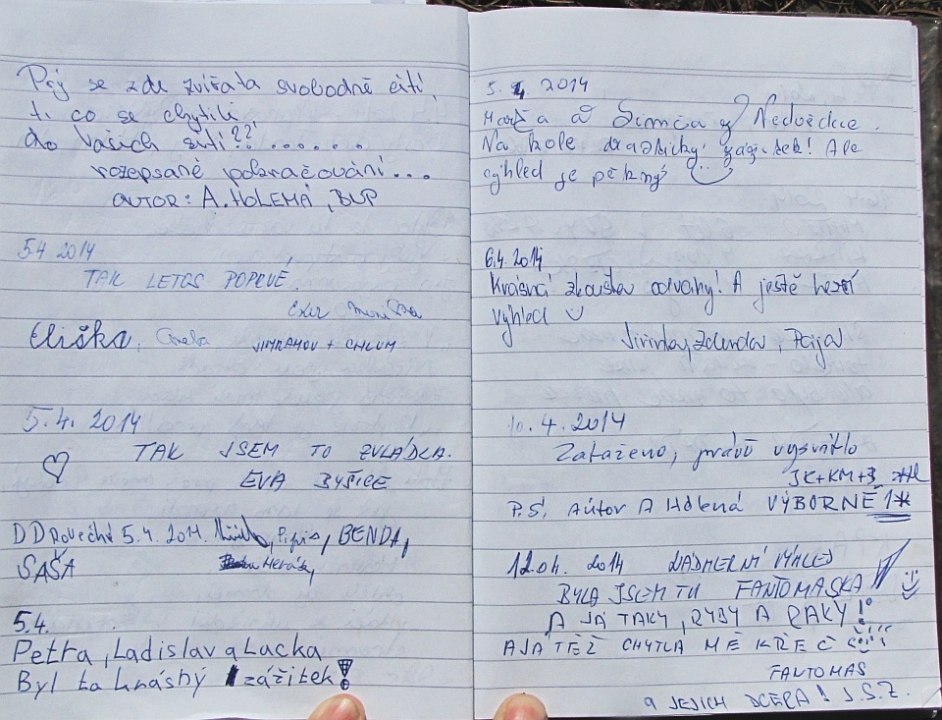 Prý se zde zvířata svobodně cítí,
ti co se chytili,
do Vašich sítí??......
rozepsané pokračování...
AUTOR: A. HOLEMÁ, BUP
5.4 2014
TAK LETOS POPRVÉ.
Eliška,
JIMRAMOV + CHLUM
5.4. 2014
TAK JSEM TO ZVLÁDLA.
EVA BYŠICE
DD Rovečné 5.4. 2014. BENDA,
SAŠA
5.4.
Petra, Ladislav a Lucka
Byl to krásný zážitek!
5. 4 2014
Simča z Nedvědice.
Na kole drasticky zážitek! Ale
výhled je pěkný
6.4. 2014
Krásná zkouška odvahy! A ještě hezčí
výhled
Zdenda,
10. 4. 2014
Zataženo, právě vysvitlo
JK+KM+B
P.S. Autor A Holená VÝBORNĚ 1*
12.04. 2014 NÁDHERNÝ VÝHLED
BYLA JSEM TU FANTOMASKA
A JÁ TAKY, RYBY A RAKY!
A JA TÉŽ CHYTLA MĚ KŘEČ
FANTOMAS
a JEJICH DCERA! J.S.Z.